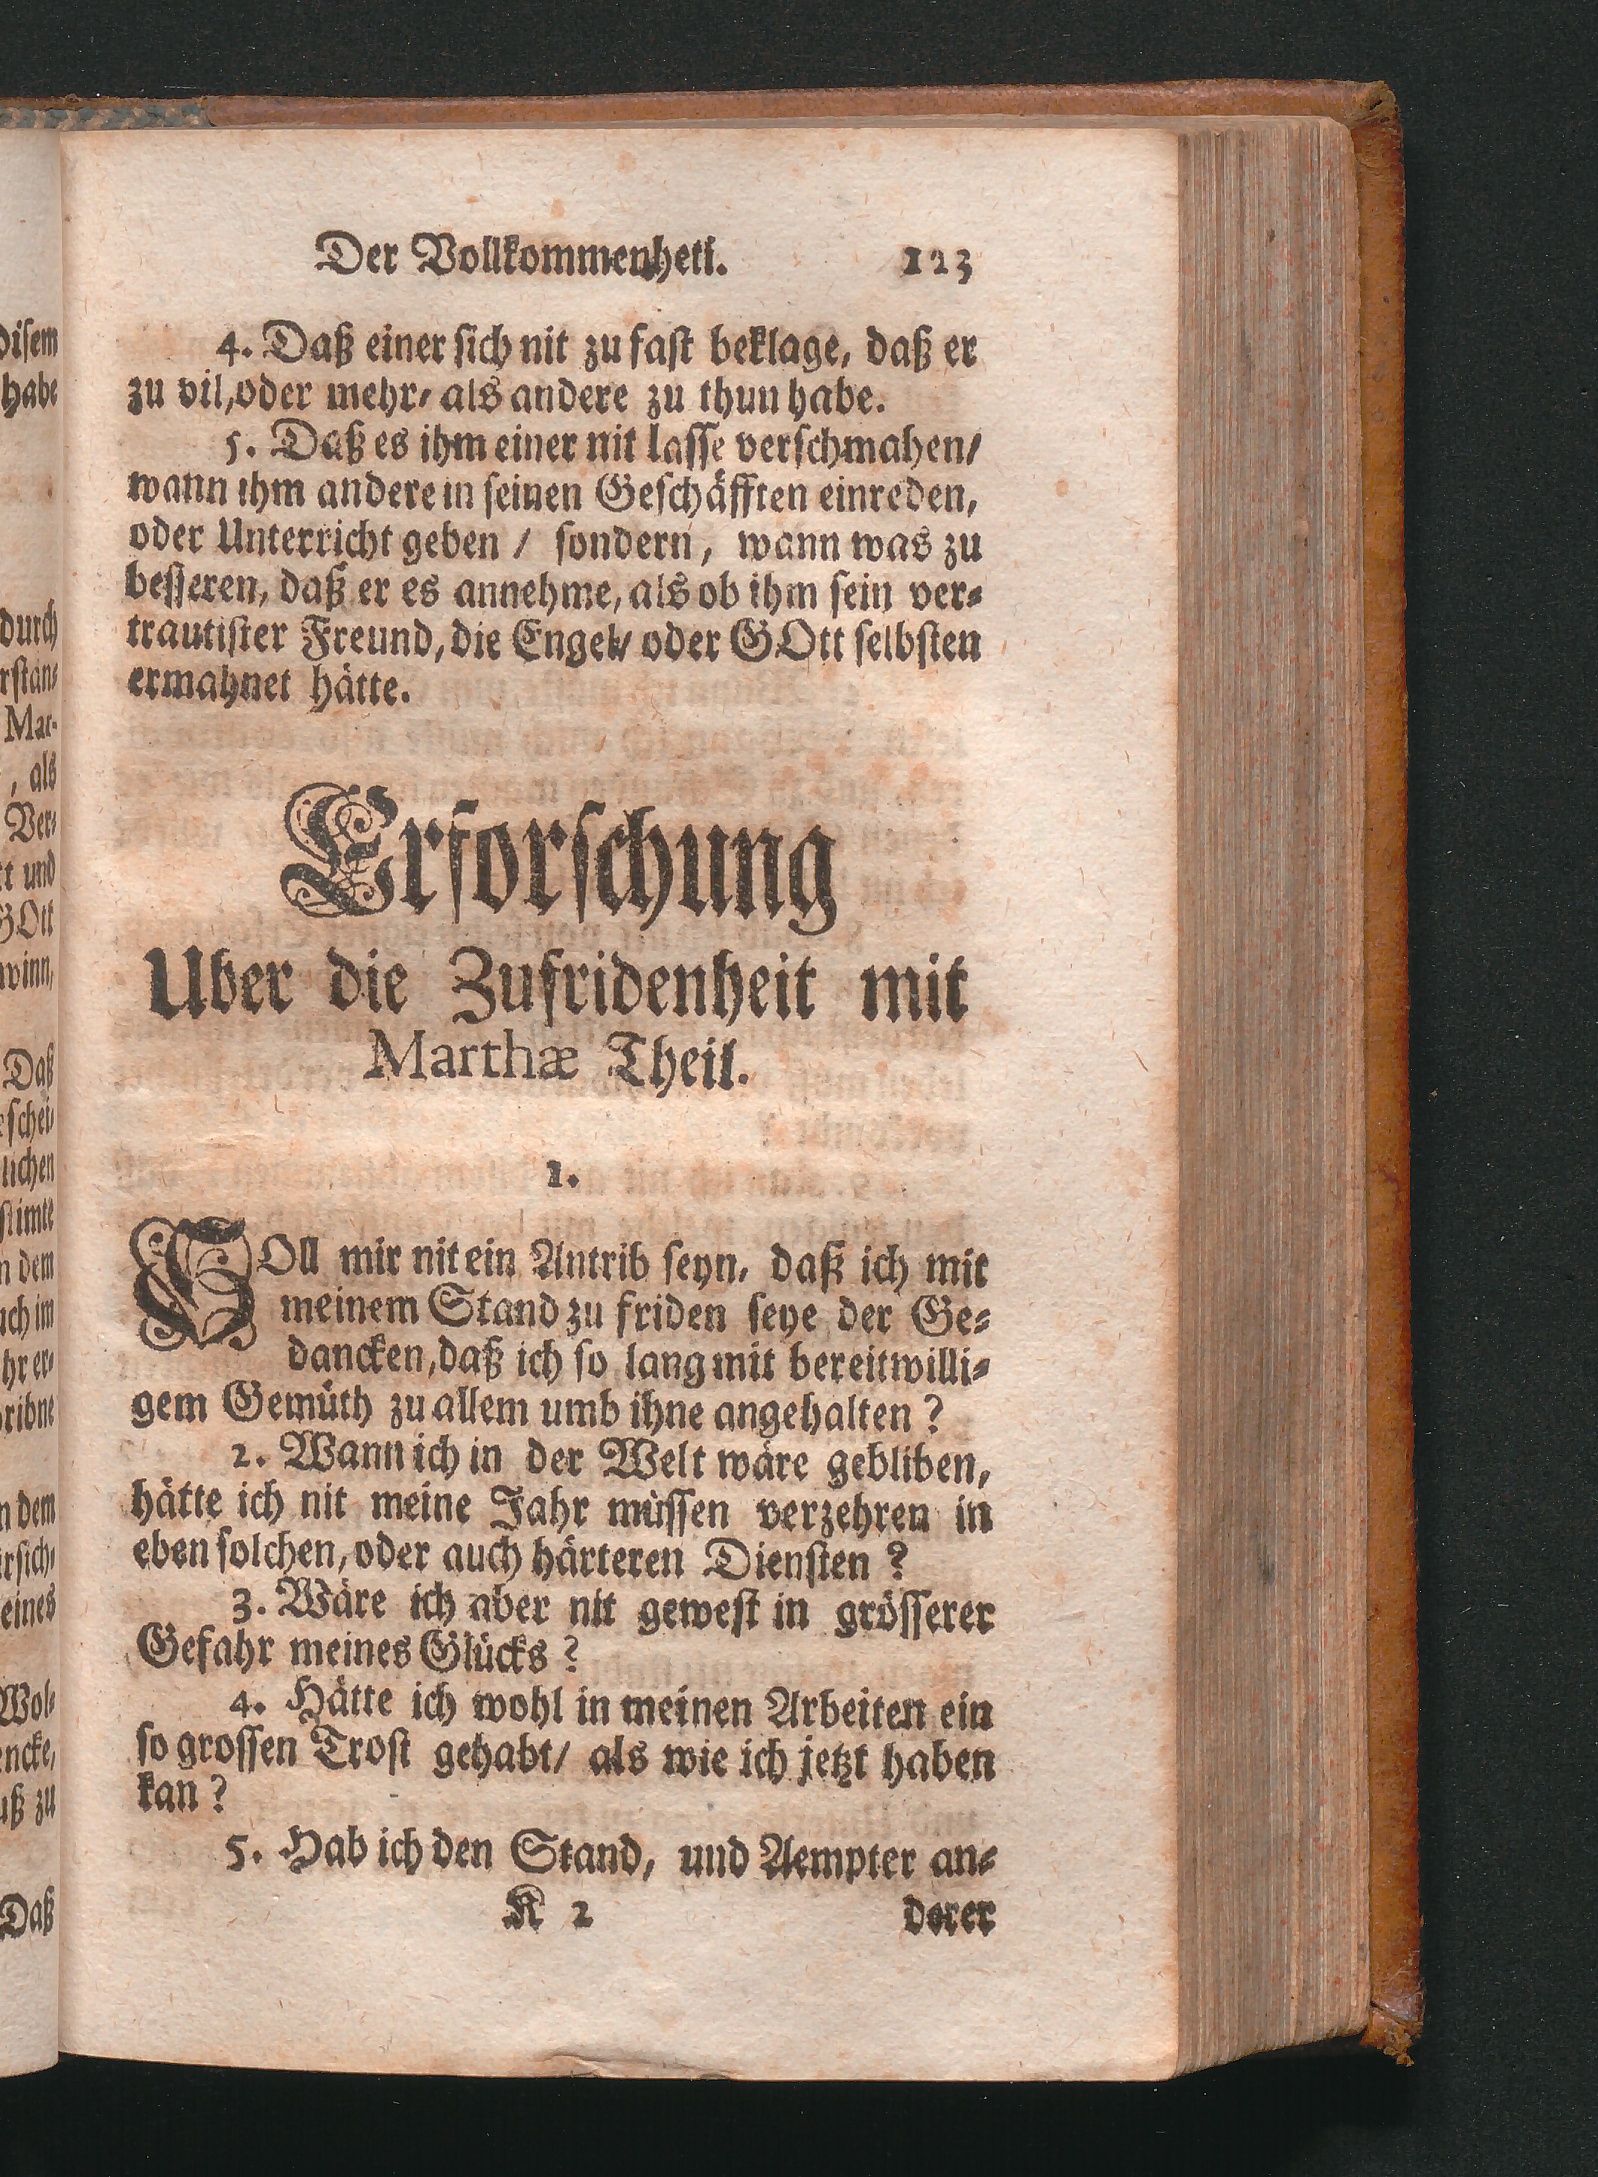 Der Vollkommenheti. 123
4. Daß einer sich nit zu fast beklage, daß er
zu vil, oder mehr/ als andere zu thun habe.
5. Daß es ihm einer nit lasse verschmahen/
wann ihm andere in seinen Geschäfften einreden,
oder Unterricht geben / sondern, wann was zu
besseren, daß er es annehme, als ob ihm sein ver-
trautister Freund, die Engel/ oder GOtt selbsten
ermahnet hätte.
Erforschung
Uber die Zufridenheit mit
Marthæ Theil.
1.
SOll mir nit ein Antrib seyn, daß ich mit
meinem Stand zu friden seye der Ge-
dancken, daß ich so lang mit bereitwilli-
gem Gemüth zu allem umb ihne angehalten?
2. Wann ich in der Welt wäre gebliben,
hätte ich nit meine Jahr müssen verzehren in
eben solchen, oder auch härteren Diensten?
3. Wäre ich aber nit gewest in grösserer
Gefahr meines Glücks?
4. Hätte ich wohl in meinen Arbeiten ein
so grossen Trost gehabt/ als wie ich jetzt haben
kan?
5. Hab ich den Stand, und Aempter an-
K 2 derer